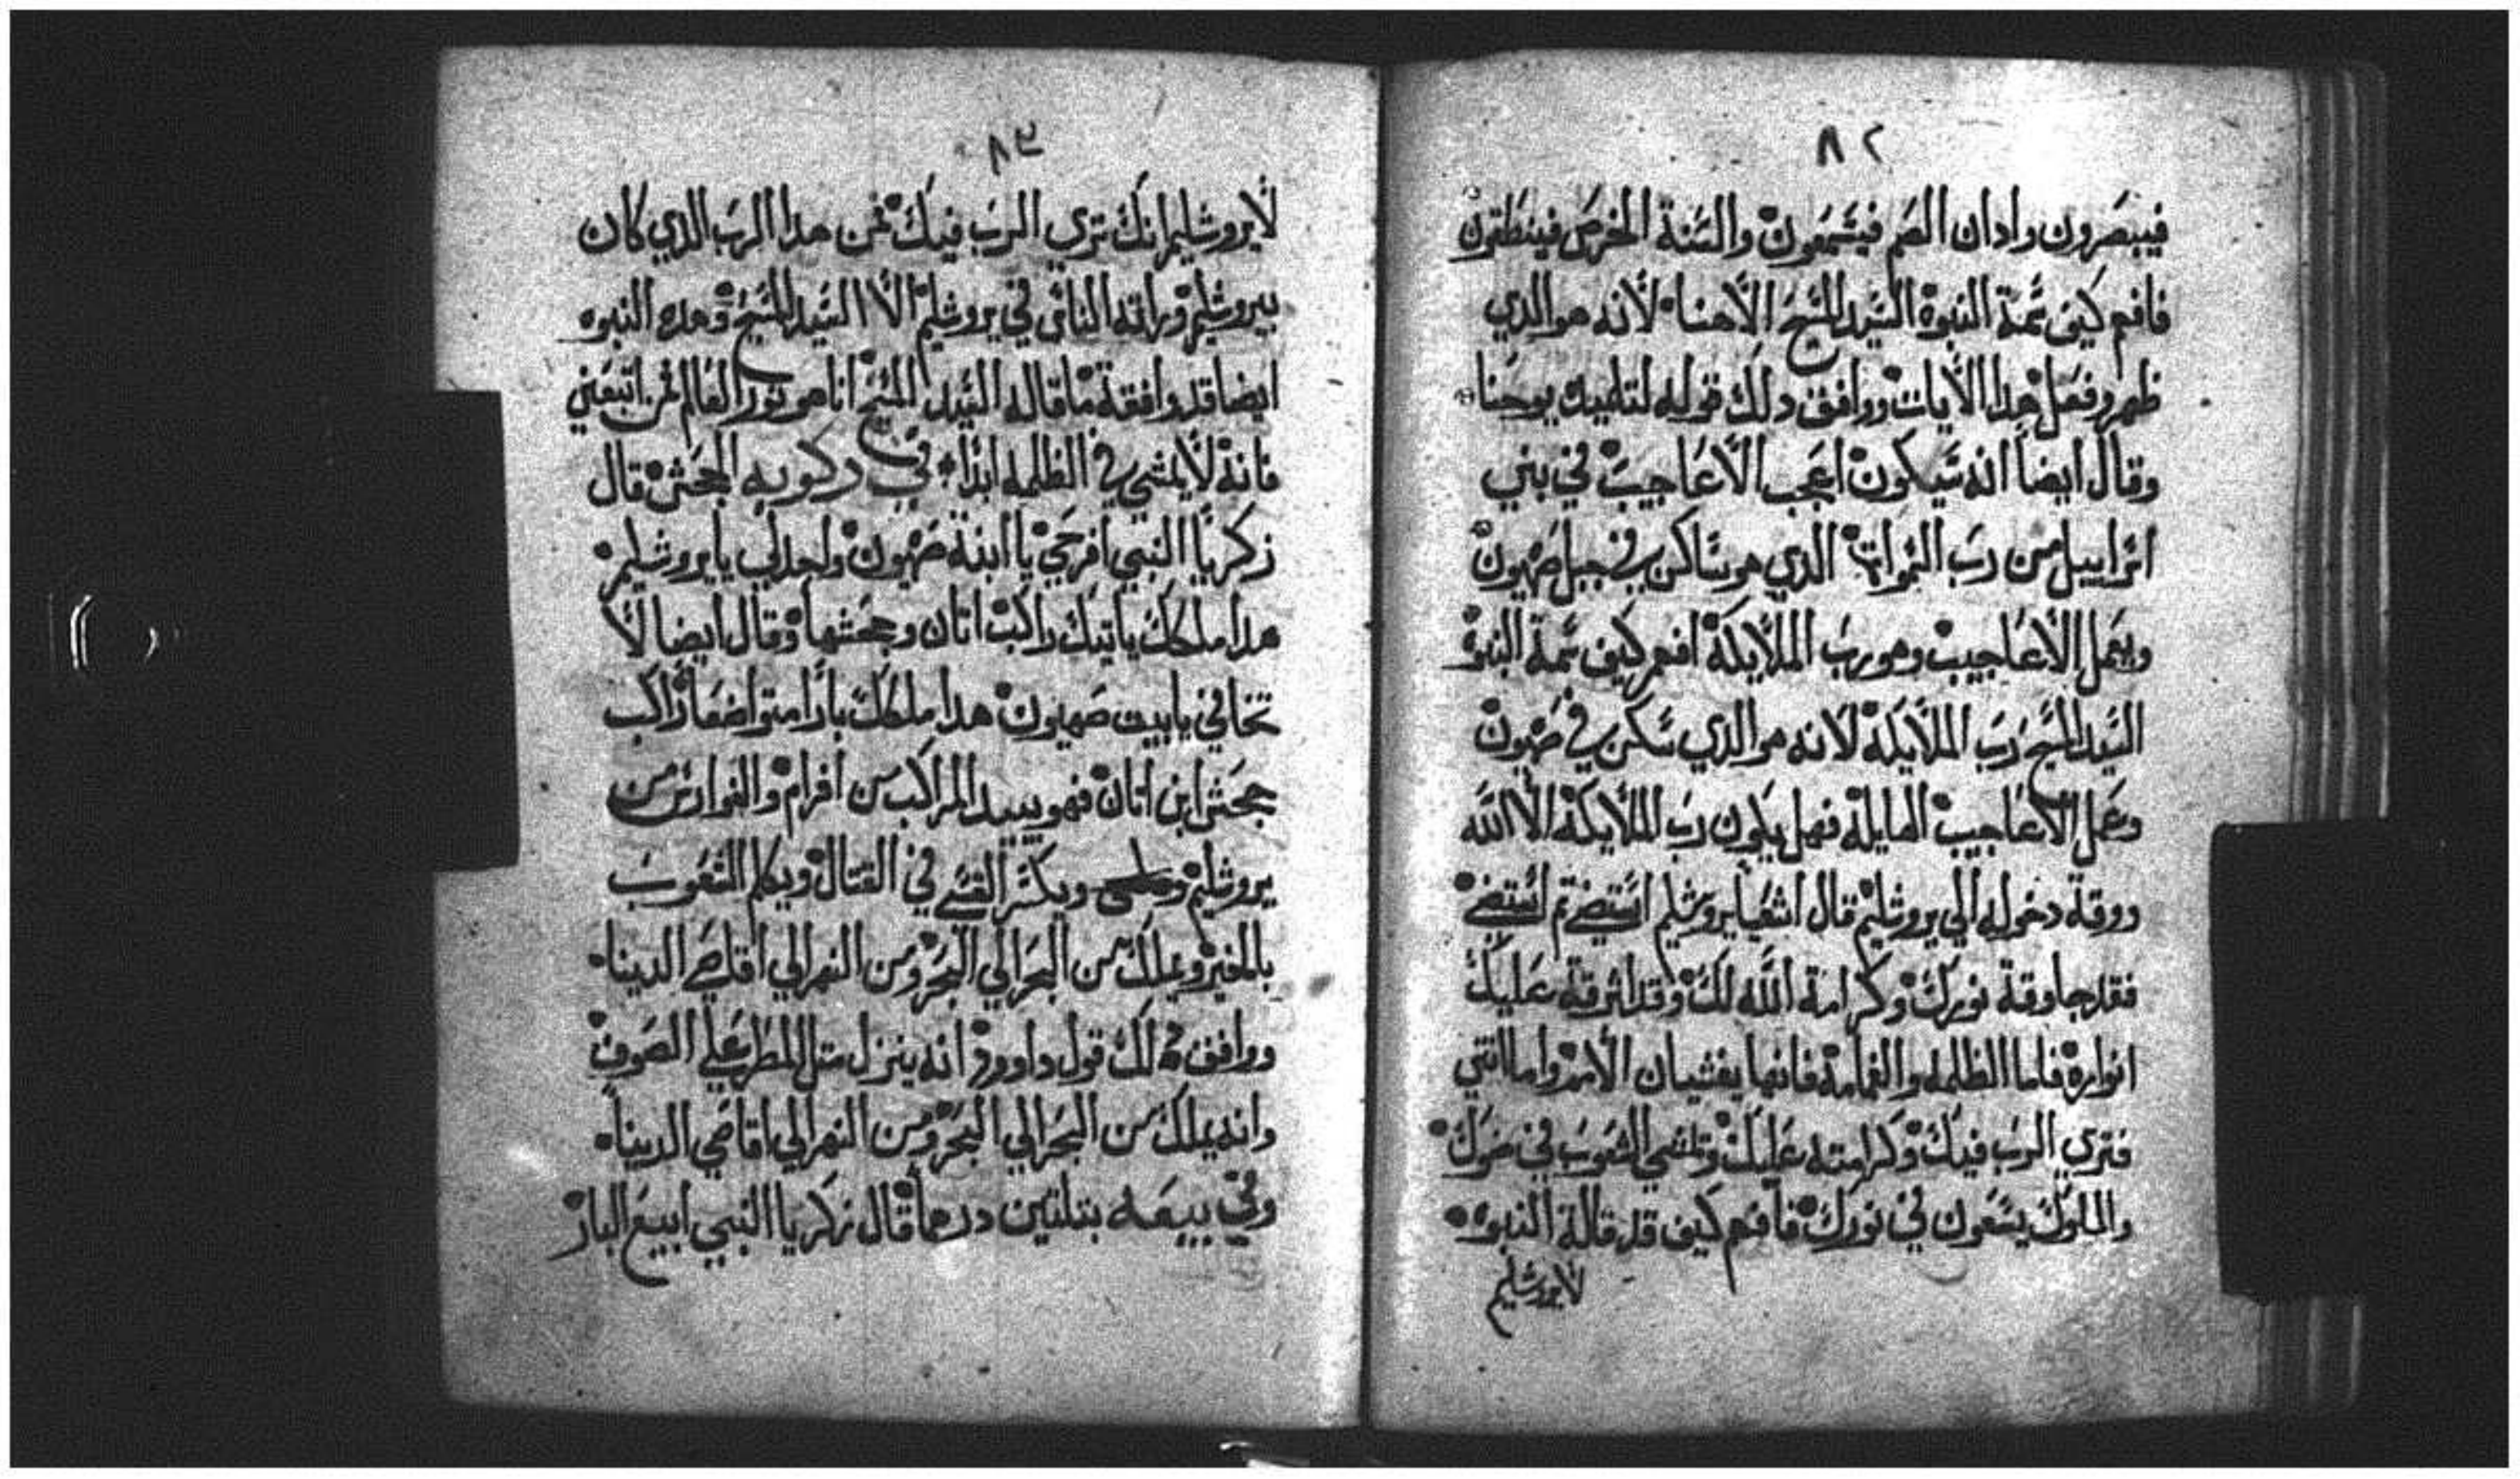 ٨٢
فيبصرون وادان الصم فيسمعون والسنة الخرس فينطقون
فافهم كيف تمة النبوة السيد المسيح الاهنا لانه هو الذي
ظهر وفعل هدا الايات ووافق دلك قوله لتلاميد يوحنا
وقال ايضا انه سيكون اعجب الاعاجيب في بني
اسراييل من رب السموات الذي هو ساكن في جبل صهيون
ويعمل الاعاجيب وهو رب الملايكة افهم كيف تمة النبوة
السيد المسيح رب الملايكة لانه هو الذي سكن في صهيون
وعمل الاعاجيب الهايلة فهل يكون رب الملايكة الا الله
ووقة دخوله الي يروشليم قال اشعيا يروشليم استضي تم استضي
فقد جا وقة نورك وكرامة الله لك وقد اشرقة عليك
انواره فاما الظلمه والغمامة فانها يغشيان الامم واما انتي
فتري الرب فيك وكرامته عليك وتمشي الشعوب في ضوك
والملوك يسعون في نورك فافهم كيف قد قالة النبوه
لايروشليم
٨٣
لايروشليم انك تري الرب فيك فمن هدا الرب الذي كان
بيروشليم وراته الناس في يروشليم الا السيد المسيح وهده النبوه
ايضا قد وافقة ما قاله السيد المسيح انا هو نور العالم فمن اتبعني
فانه لا يمشي في الظلمه ابدا في ركوبه الجحش قال
زكريا النبي افرحي يا ابنة صهيون واجدلي يا يروشليم
هدا ملكك ياتيك راكب اتان وجحشها وقال ايضا لا
تخافي يا بيت صهيون هدا ملكك بارا متواضعا راكب
جحش ابن اتان فهو يبيد المراكب من افرام والفوارس من
يروشليم ويكسر القسي في القتال ويكلم الشعوب
بالخير ويملك من البحر الي البحر ومن النهر الي اقاصي الدينا
ووافق دلك قول داوود انه ينزل مثل المطر علي الصوف
وانه يملك من البحر الي البحر ومن النهر الي اقاصي الدينا
وفي بيعه بتلتين درهما قال زكريا النبي ابيع البار